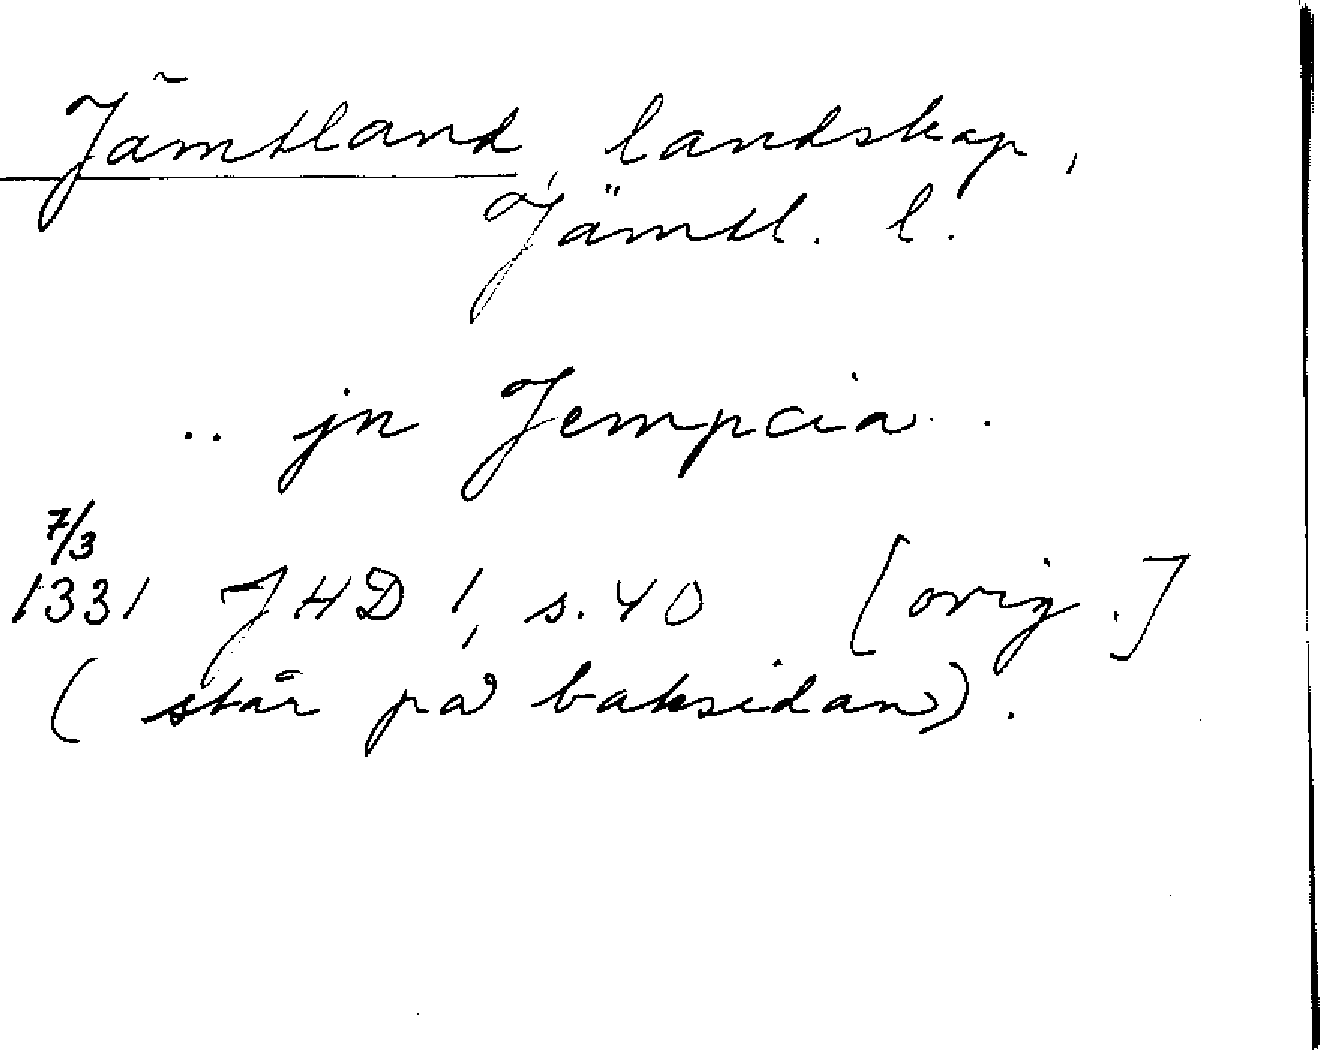 Jämtland, landskap,
Jämtl. l.
.. jn Jempcia . .
7/3
1331 JHD 1, s. 40 [orig.]
(står på baksidan).